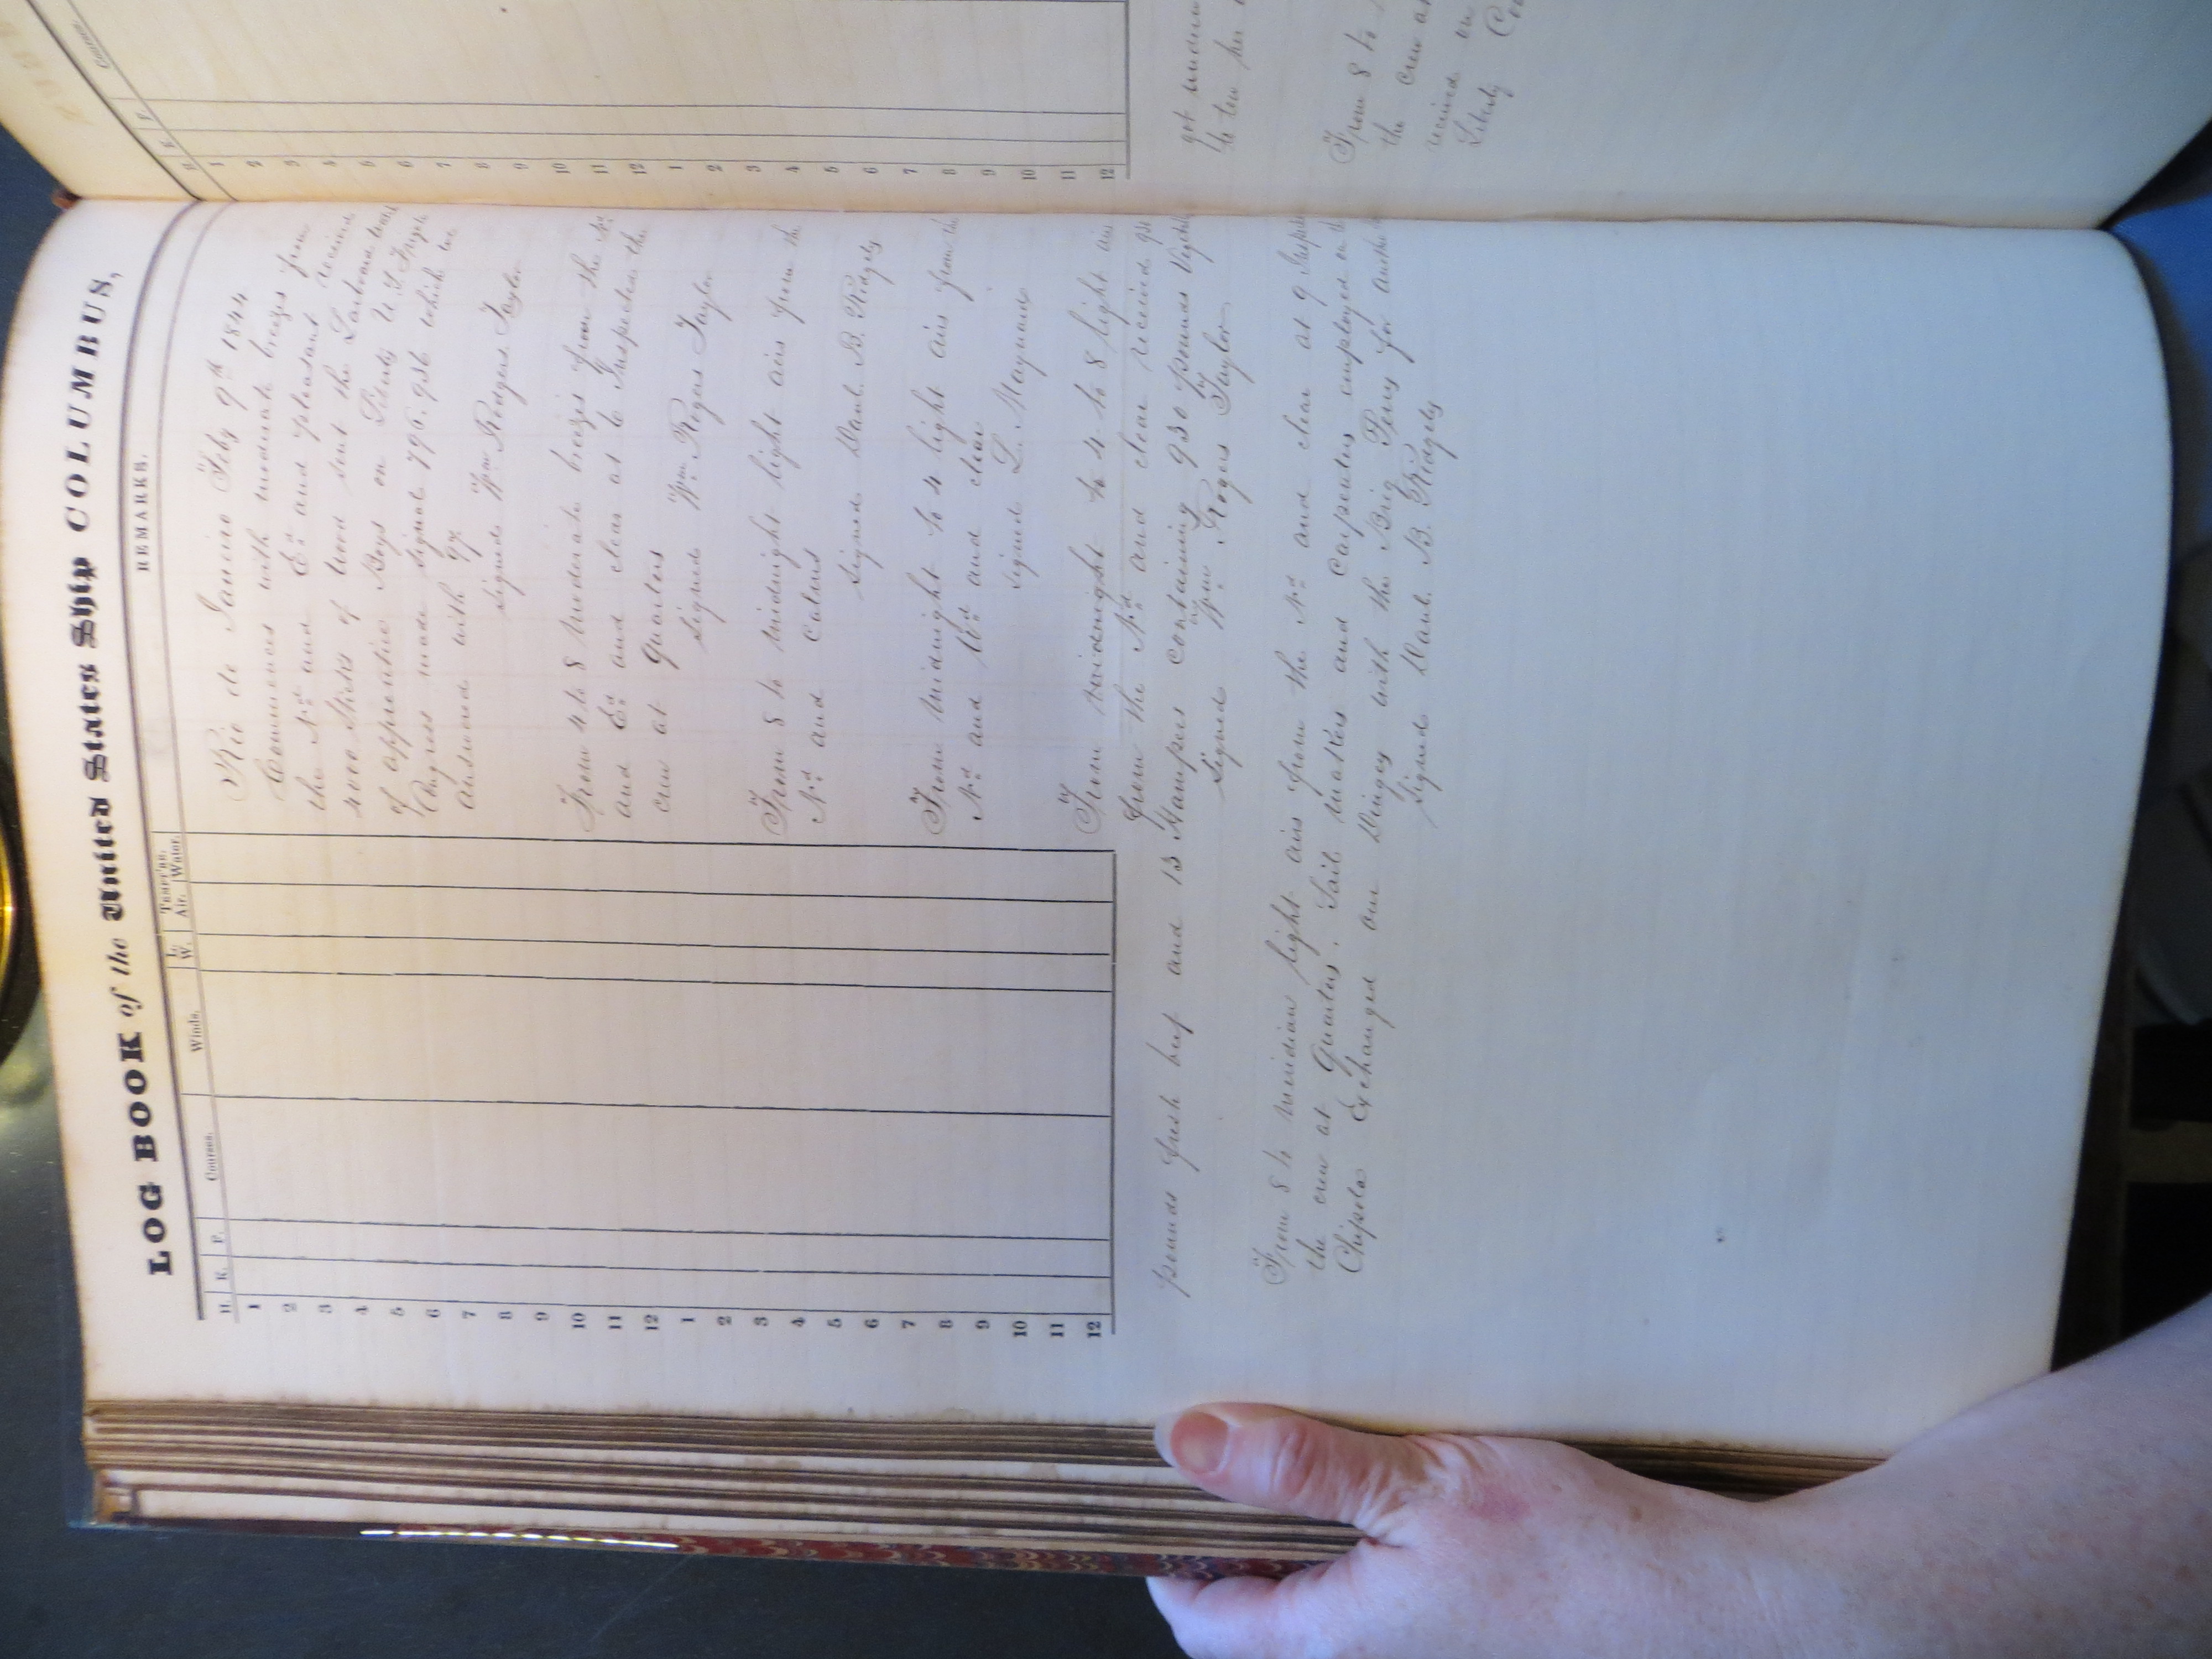 LOG BOOK of the United States Ship COLUMBUS,
REMARKS.
H. K. F. Courses. Winds. L. W. TEMP'RE. Air. Water.
1
2
3
4
5
6
7
8
9
10
11
12
1
2
3
4
5
6
7
8
9
10
11
12
Rio de Janeiro Feby 9th 1844
Commences with moderate breezes from
the Nd and Ed and pleasant received
4000 Sticks of Wood sent the Larboard
of apprentice Boys on Liberty U.S Frigate
Congress made signal 796.936 which we
answered with 97
signed Wm Rodgers Taylor
From 4 to 8 Moderate breezes from the Nd
and Ed and clear at 6 Inspected the
crew at Quarters
signed Wm Rogers Taylor
From 8 to Midnight light airs from the
Nd and Calms
signed Danl. B. Ridgely
From Midnight to 4 light airs from the
Nd and Wd and clear
signed L. Maynard
From Midnight to 4 to 8 light airs
from the Nd and clear received
pounds fresh beef and 13 Hampers containing 930 pounds
signed Wm Rogers Taylor
From 8 to Meridian light airs from the Nd and clear at 9
the crew at Quarters. Sail Makers and Carpenters employed on the
Chipola Exchanged our Dingey with the Brig Perry for another
signed Danl. B. Ridgely
Courses.
H. K. F.
1
2
3
4
5
6
7
8
9
10
11
12
1
2
3
4
5
6
7
8
9
10
11
12
got
to tow her
From 8 to
the crew
received on
Liberty